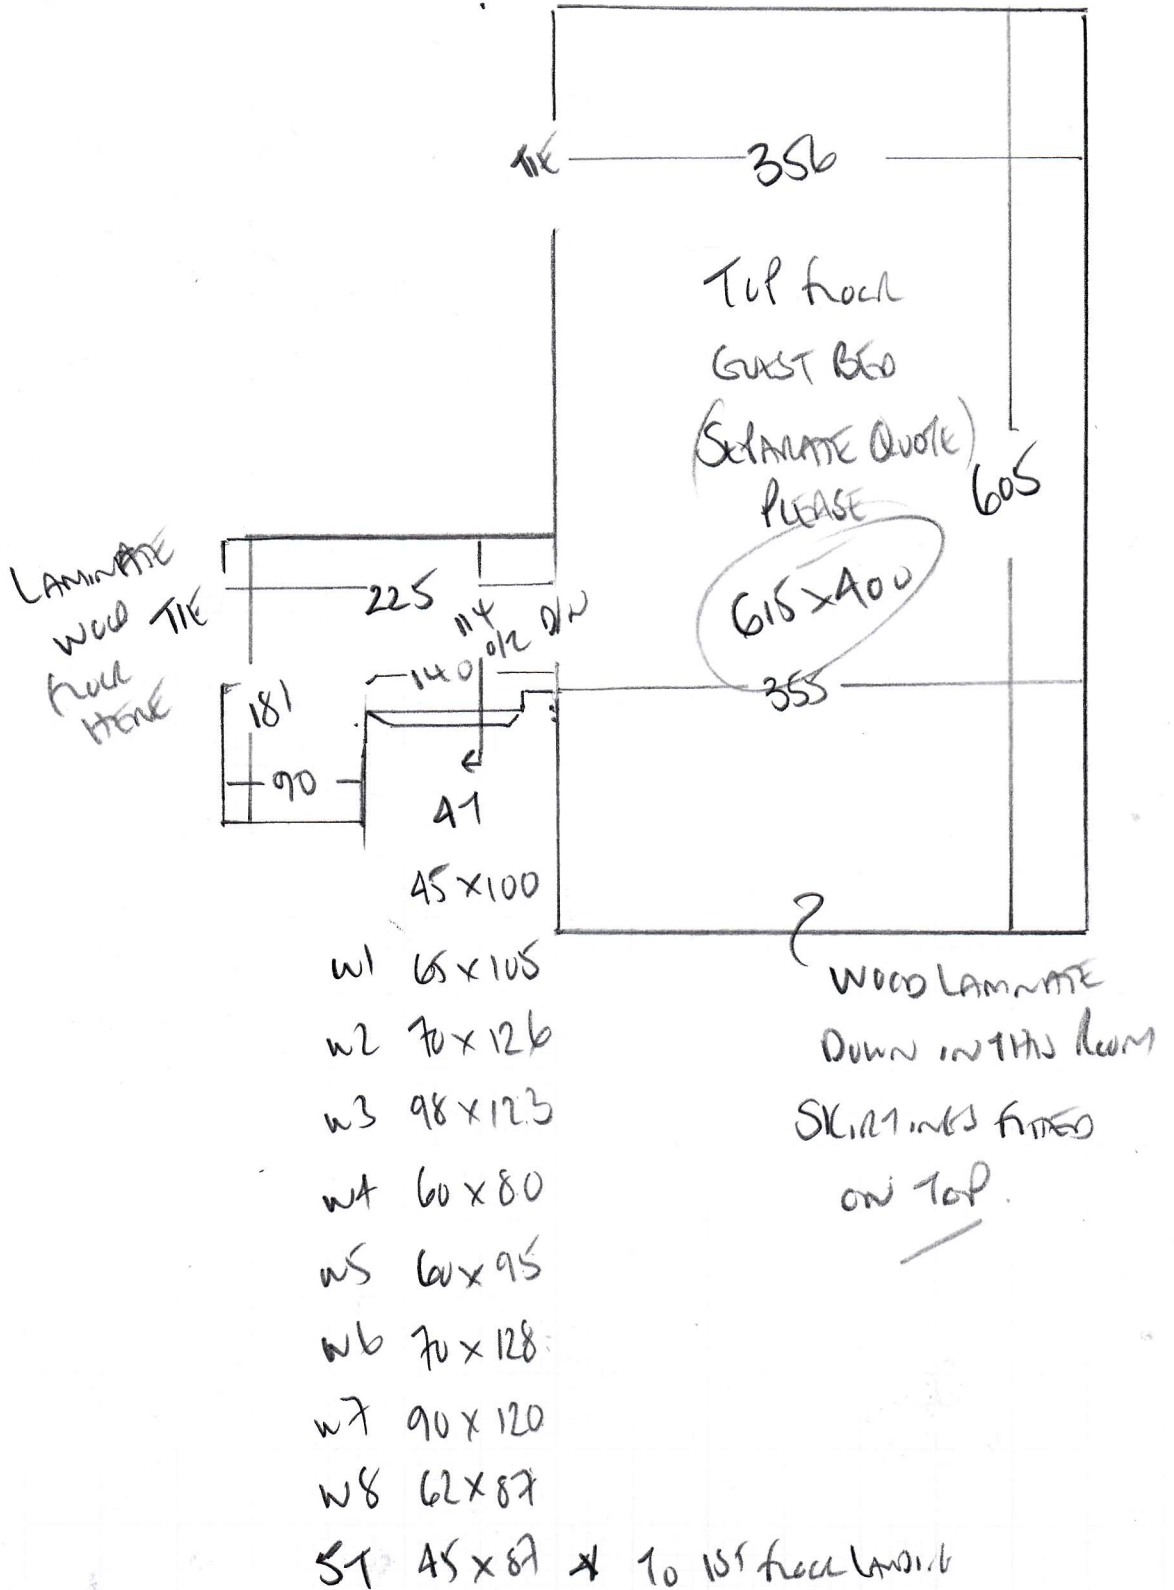 TIE 356
TOP FLOOR
GUEST BED
(SEPARATE QUOTE)
PLEASE
605
615 x 400
355
LAMINATE
WOOD TIE
FLOOR
HERE
225
114
O/R
D/N
140
181
90
4T
45 x 100
W1 65 x 105
W2 70 x 126
W3 98 x 123
W4 60 x 80
W5 60 x 95
W6 70 x 128
W7 90 x 120
W8 62 x 87
5T 45 x 87 * TO 1ST FLOOR LANDING
WOOD LAMINATE
DOWN IN THIS ROOM
SKIRTINGS FITTED
ON TOP.